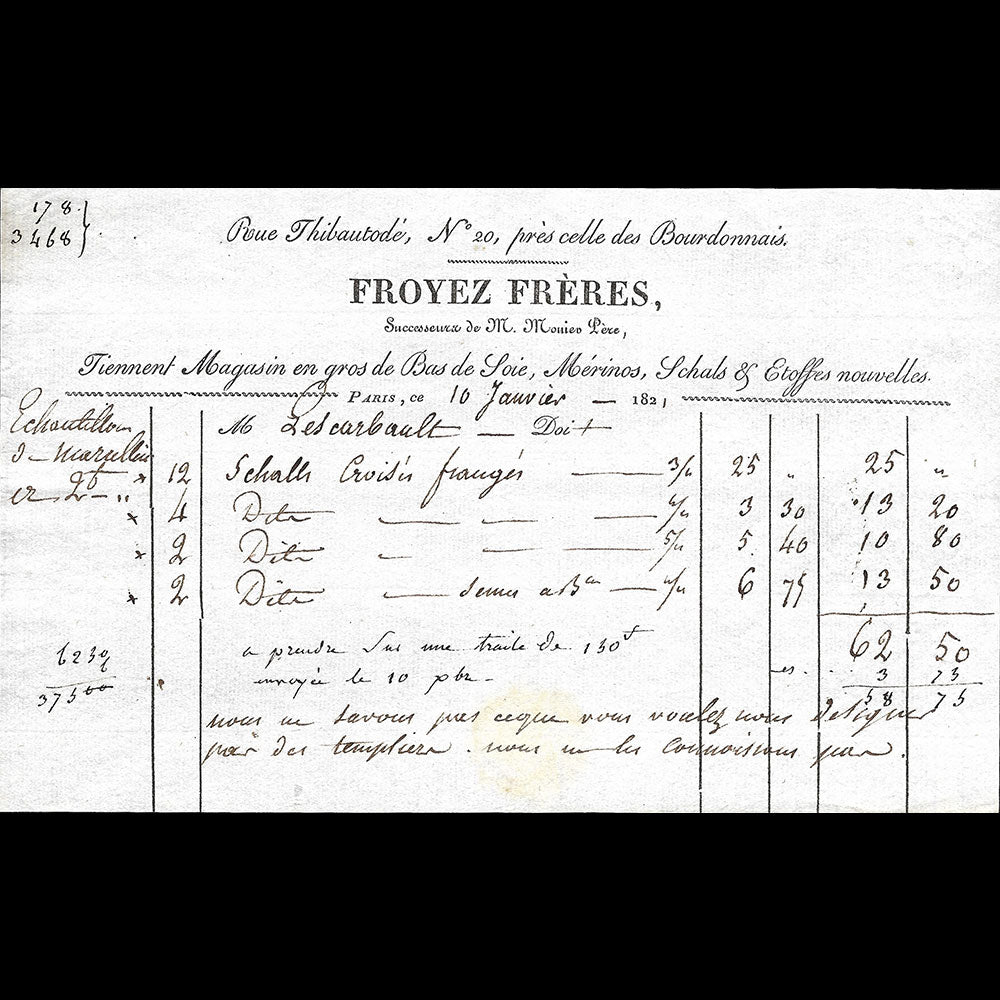 178
3468
Rue Thibautodé, N° 20, près celle des Bourdonnais.
FROYEZ FRÈRES,
Successeurs de M. Monier Père,
Tiennent Magasin en gros de Bas de Soie, Mérinos, Schals & Etoffes nouvelles.
PARIS, ce 10 Janvier 1821
M Lescarbault Doit
Echantillon
12 Schalls Croisés frangés 3/4 25 " 25 "
4 Dito 4/4 3 30 13 20
2 Dito 5/4 5 40 10 80
2 Dito 4/4 6 75 13 50
62 50
a prendre Sur une traite de 130f
envoyée le 10 pbre 3 75
58 75
6230
6
37500
nous ne savons pas ceque vous voulez nous designer
par des templiers. nous ne les connoissons pas.